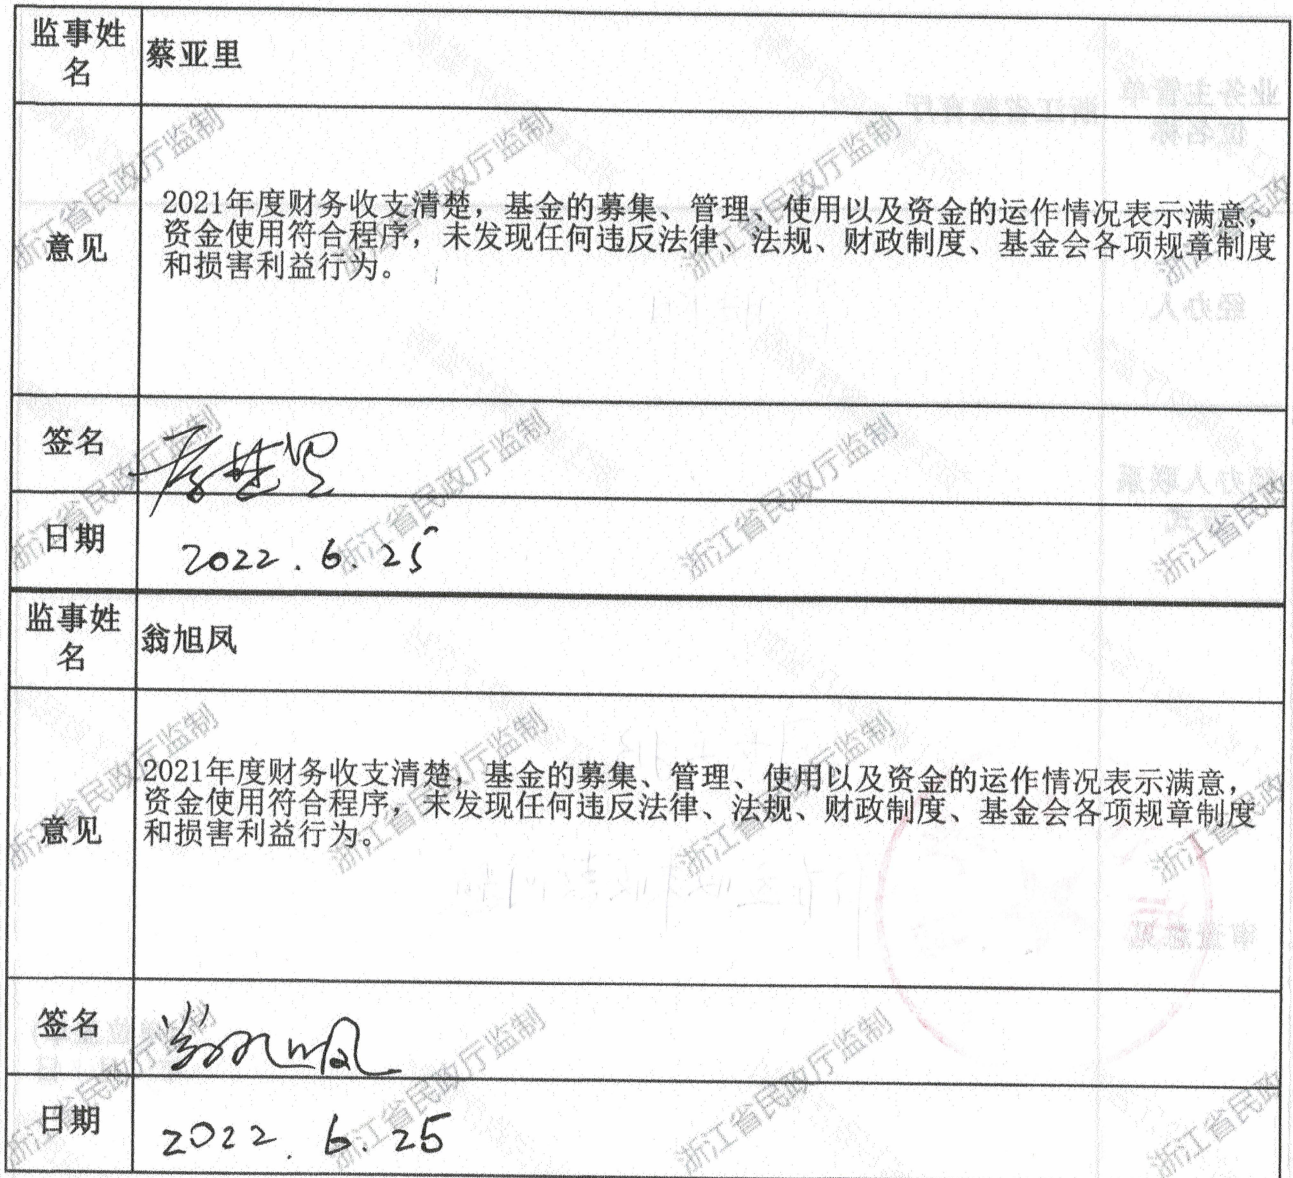 监事姓
名
蔡亚里
意见
2021年度财务收支清楚，基金的募集、管理、使用以及资金的运作情况表示满意，
资金使用符合程序，未发现任何违反法律、法规、财政制度、基金会各项规章制度
和损害利益行为。
签名
蔡亚里
日期
2022.6.25
监事姓
名
翁旭凤
意见
2021年度财务收支清楚，基金的募集、管理、使用以及资金的运作情况表示满意，
资金使用符合程序，未发现任何违反法律、法规、财政制度、基金会各项规章制度
和损害利益行为。
签名
翁旭凤
日期
2022.6.25
浙江省民政厅监制